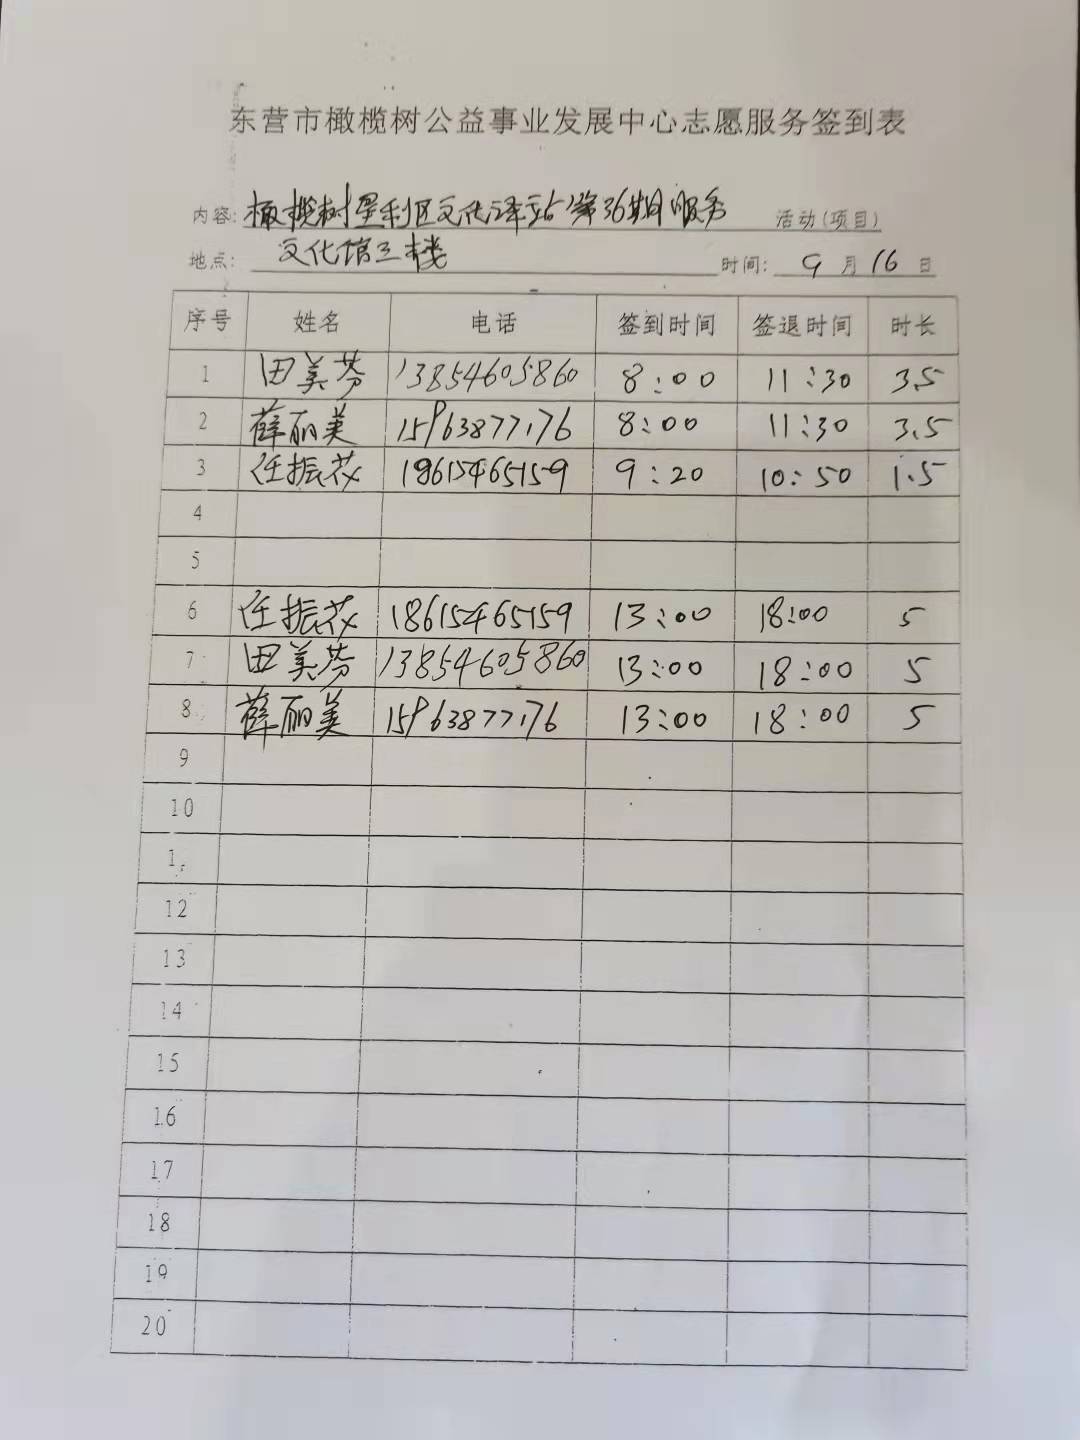 东营市橄榄树公益事业发展中心志愿服务签到表
内容: 橄榄树垦利区文化驿站第36期服务 活动(项目)
地点: 文化馆三楼 时间: 9月16日
序号 姓名 电话 签到时间 签退时间 时长
1 田美芬 13854605860 8:00 11:30 3.5
2 薛丽美 15963877176 8:00 11:30 3.5
3 任振花 18615465159 9:20 10:50 1.5
4
5
6 任振花 18615465159 13:00 18:00 5
7 田美芬 13854605860 13:00 18:00 5
8 薛丽美 15963877176 13:00 18:00 5
9
10
1
12
13
14
15
16
17
18
19
20